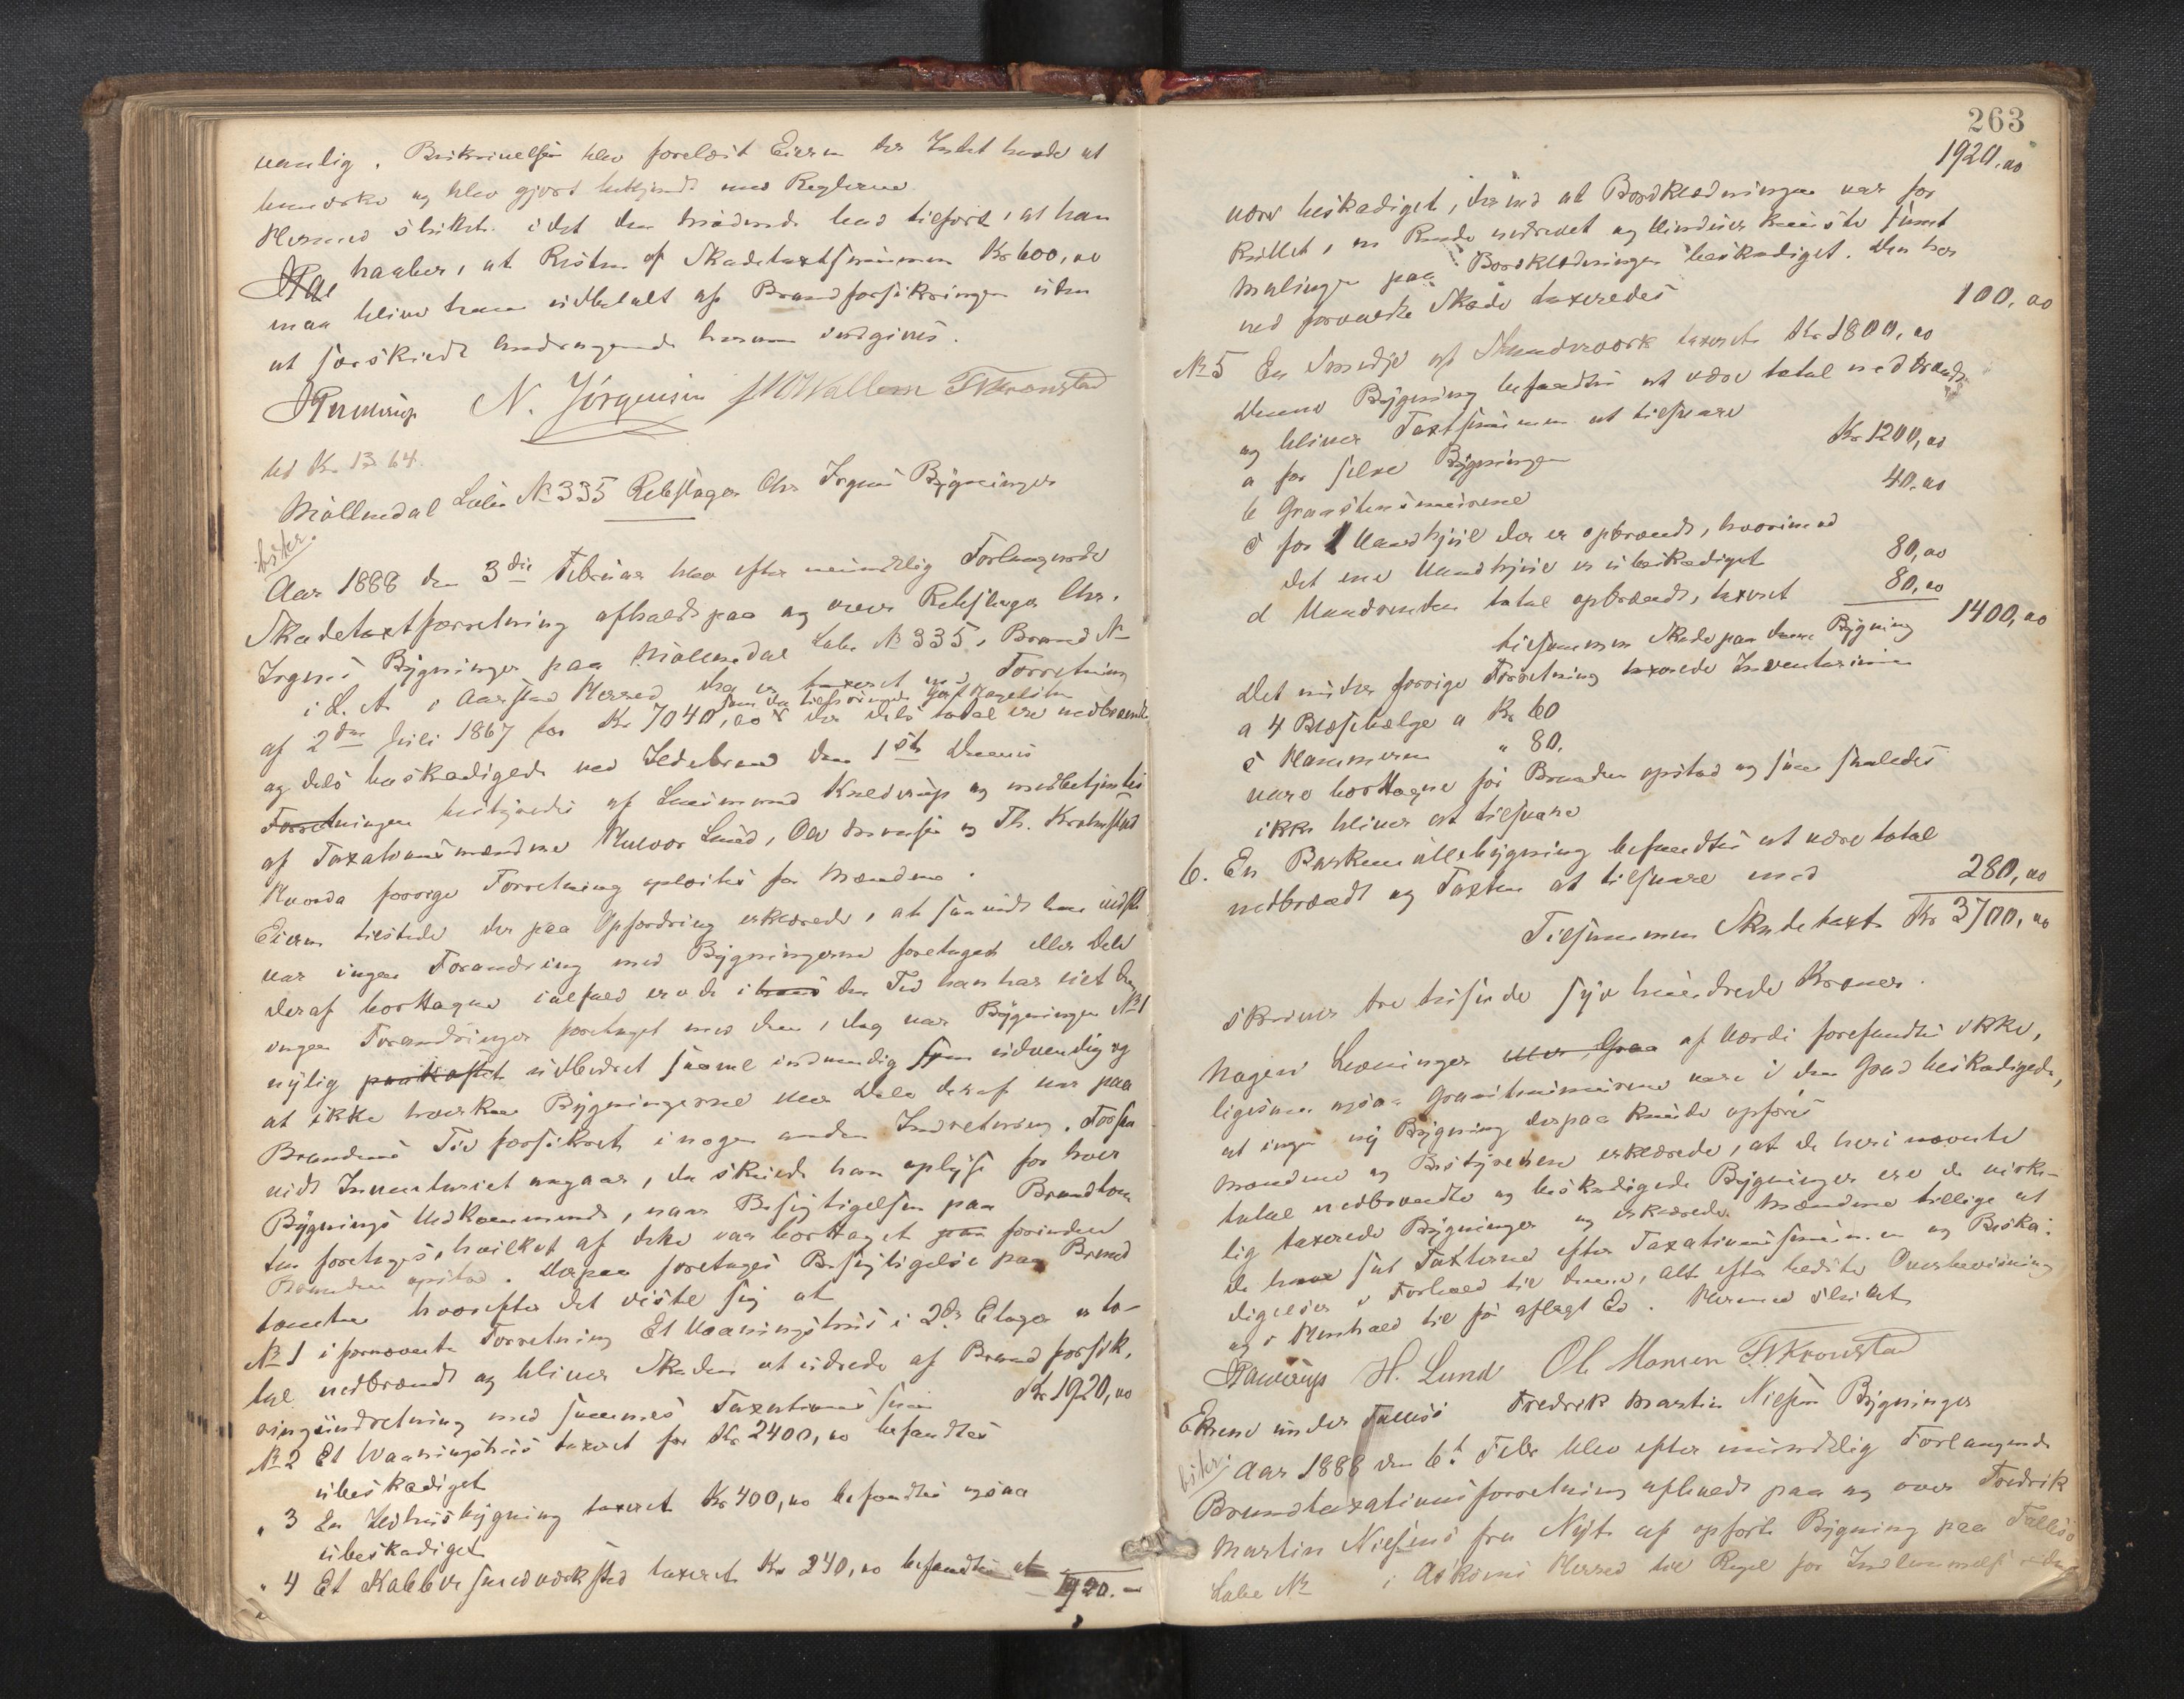 vanlig. Beskrivelsen blev forelæst Eieren der Intet havde at
bemærke og blev gjort bekjendt med Reglerne
Hermed sluttet. idet den mødende lod tilført, at han
haaber, at Resten af Skadetaxtsummen Kr 600,00
maa blive ham udbetalt af Brandforsikringen uden
at særskildt andragende herom indgives.
N. Jörgensen Wallem Kronstad
bd Kr. 13 64.
Möllendal Løbe No 335 Rebslager Chr Irgens Bygninger
beskr.
Aar 1888 den 3die Februar blev efter mundtlig Forlangende
Skadetaxtforretning afholdt paa og over Rebslager Chr.
Irgens Bygninger paa Möllendal Løbe No 335, Brand No
i L. A. i Aarstad Herred der er taxeret ved Forretning
af 2den Juli 1867 for Kr 7040,00 der dels total ere nedbrændte
og dels beskadigede ved Ildebrand den 1ste dennes
Forretningen bestyredes af Lensmand og medbetjentes
af Taxationsmændene Halvor Lund, Ole Monsen og Th. Kronstad
Hvorda forrige Forretning oplæstes for Mændene.
Eieren tilstede der paa Opfordring erklærede, at saavidt han vidste
var ingen Forandring med Bygningerne foretaget eller Dele
deraf borttagne ialfald ere de i hans den Tid han har eiet dem
ingen Forandringer foretaget med dem, dog var Bygningen No 1
nylig paakostet udbedret saavel indvendig som udvendig og
at ikke hverken Bygningerne eller Dele deraf var paa
Brandens Tid forsikret i nogen anden Indretning. Forsaa
vidt Inventariet angaar, da skulde han oplyse for hver
Bygnings Vedkommende, naar Besigtigelsen paa Brandtom
ten foretages, hvilket af dette var borttaget forinden
Branden opstod. Derpaa foretages Besigtigelse paa Brand
tomten hvorefter det viste sig at
No 1 i fornævnte Forretning Et Vaaningshus i 2de Etager er to-
tal nedbrændt og bliver Skaden at udrede af Brandforsik,
ringsindretning med sammes Taxationssum Kr 1920,00
No 2 Et Vaaningshus taxeret for Kr 2400,00 befandtes
ubeskadiget
" 3 En Ildhusbygning taxeret Kr 400,00 befandtes ogsaa
ubeskadiget
" 4 Et Kobbersmedværksted taxeret Kr 240,00 befandtes at
1920.-
263
1920.00
være beskadiget, derved at Bordklædningen var for
kullet, en Rende nedrevet og Vinduer knuste samt
Malingen paa Bordklædningen beskadiget. Den her
ved forvoldte Skade taxeredes 100,00
No 5 En Smedje af Muurværk taxeret Kr 1800,00
Denne Bygning befandtes at være total nedbrændt
og bliver Taxtsummen at tilsvare
a for selve Bygningen Kr 1200,00
b Graastensmurene 40,00
c for 1 Vandhjul der er opbrændt, hvorimod
det ene Vandhjul er ubeskadiget 80,00
d Vandrenden total opbrændt, taxeret 80,00
tilsammen Skade paa denne Bygning 1400,00
Det under forrige Forretning taxerede Inventarium
a 4 Blæsebælge a Kr 60
c Hammeren " 80.
vare borttagne før Branden opstod og som saaledes
ikke bliver at tilsvare
6. En Barkemøllebygning befandtes at være total
nedbrændt og Taxten at tilsvare med 280,00
Tilsammen Skadetaxt Kr 3700,00
skriver tre tusinde syv hundrede Kroner.
Nogen Levninger eller Graa af Værdi forefandtes ikke,
ligesom ogsaa Granitmurene vare i den Grad beskadigede,
at ingen ny Bygning derpaa kunde opføres
Mændene og Bestyrelsen erklærede, at de heri nævnte
total nedbrændte og beskadigede Bygninger ere de virke-
lig taxerede Bygninger og erklærede Mændene tillige at
de have sat Taxterne efter Taxationssummen og Beska-
digelser i Forhold til denne, alt efter bedste Overbevisning
og i Henhold til før aflagt Ed. Hermed sluttet
H. Lund Ole Monsen Th Kronstad
Ekrene under Fredrik Martin Nielsens Bygninger
beskr.
Aar 1888 den 6t Febr blev efter mundtlig Forlangende
Brandtaxationsforretning afholdt paa og over Fredrik
Martin Nielsens fra Nyt af opført Bygning paa
Løbe No i Askøens Herred til Regel for Indlemmelse